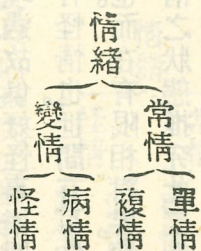 情緒
常情
變情
單情
複情
病情
怪情